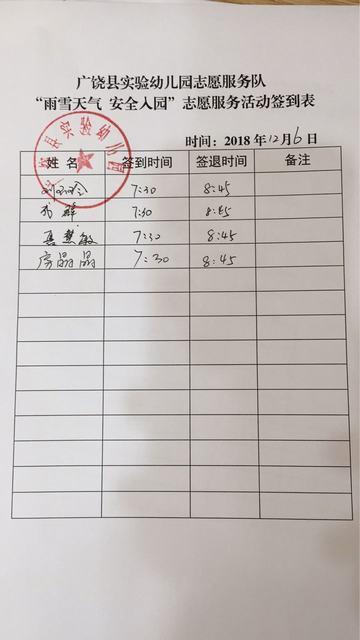 广饶县实验幼儿园志愿服务队
“雨雪天气 安全入园”志愿服务活动签到表
时间：2018 年12月6日
姓 名 签到时间 签退时间 备注
7:30 8:45
7:30 8:45
慧敏 7:30 8:45
房晶晶 7:30 8:45
县实验幼儿园